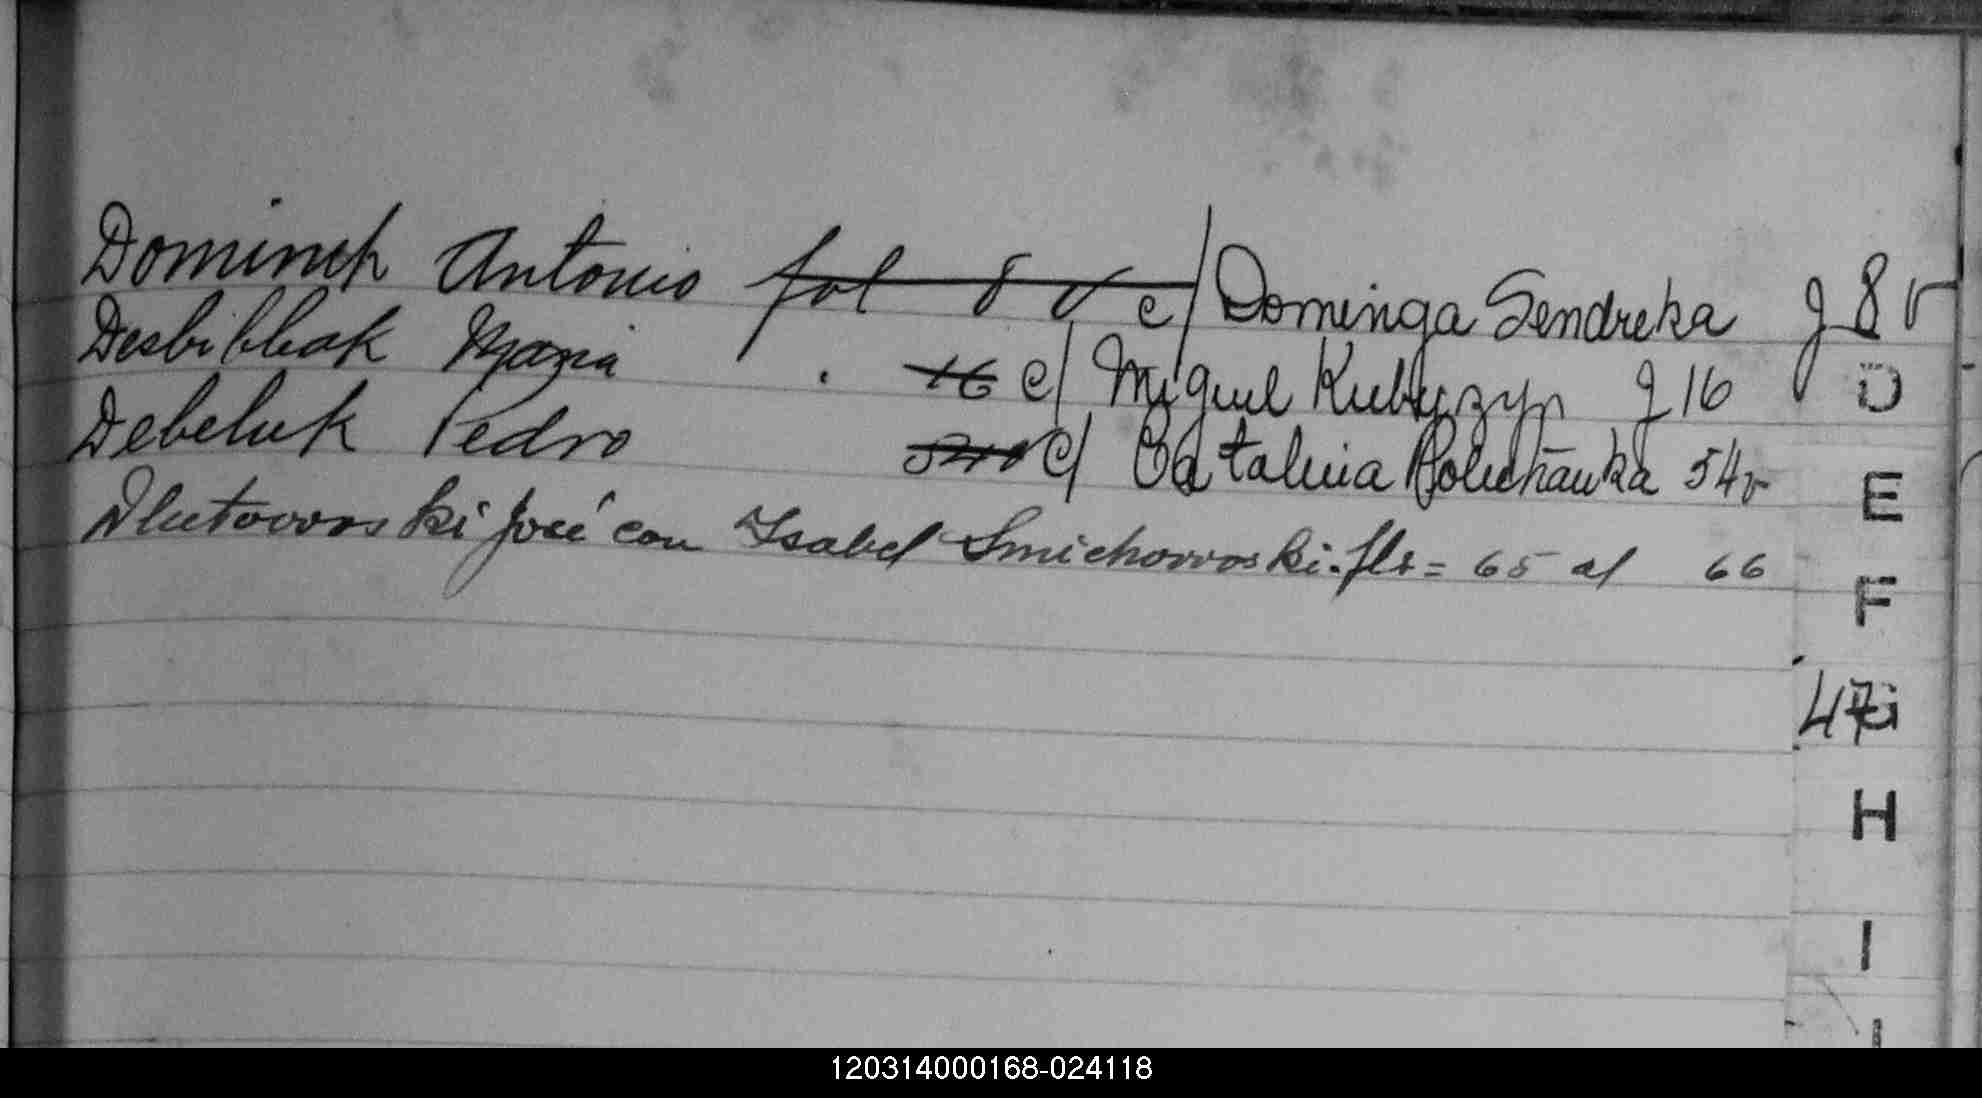 Dominch Antonio fol 8 v c/ Dominga Sendreka f 8 v
Desbibliak Maria 16 c/ Miguel Kubyzyn f 16
Debeluk Pedro 54v c/ Catalina Poluchanka 54v
Dlutowski José con Isabel Smichowoski. fls = 65 al 66
D
E
F
47 G
H
I
120314000168-024118